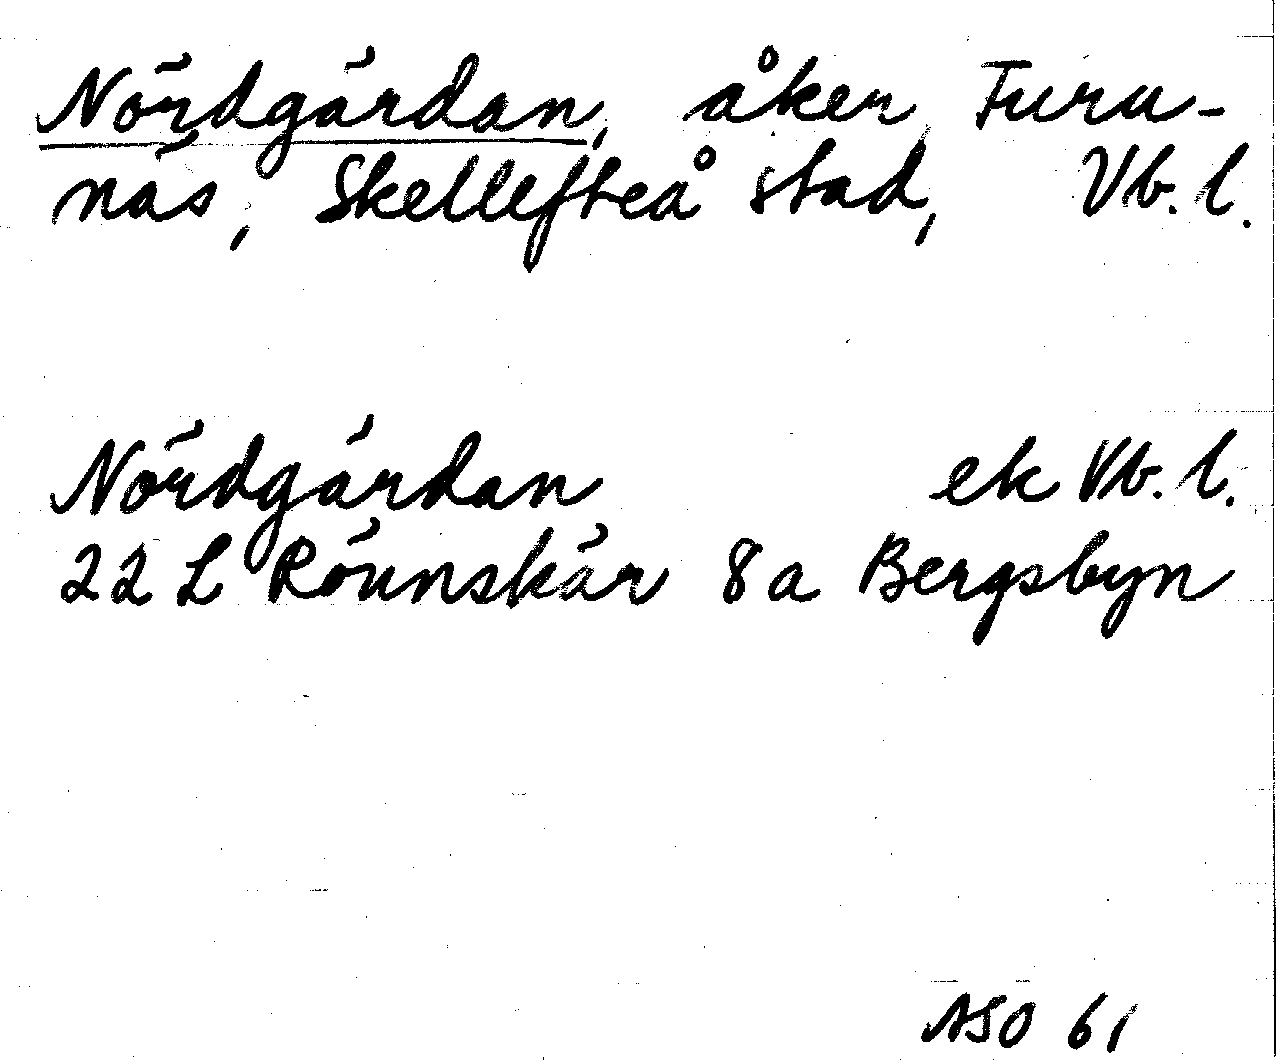 Nördgärdan, åker, Furu-
näs, Skellefteå stad, Vb. l.
Nördgärdan ek Vb. l.
22 L Rönnskär 8a Bergsbyn
ASO 61